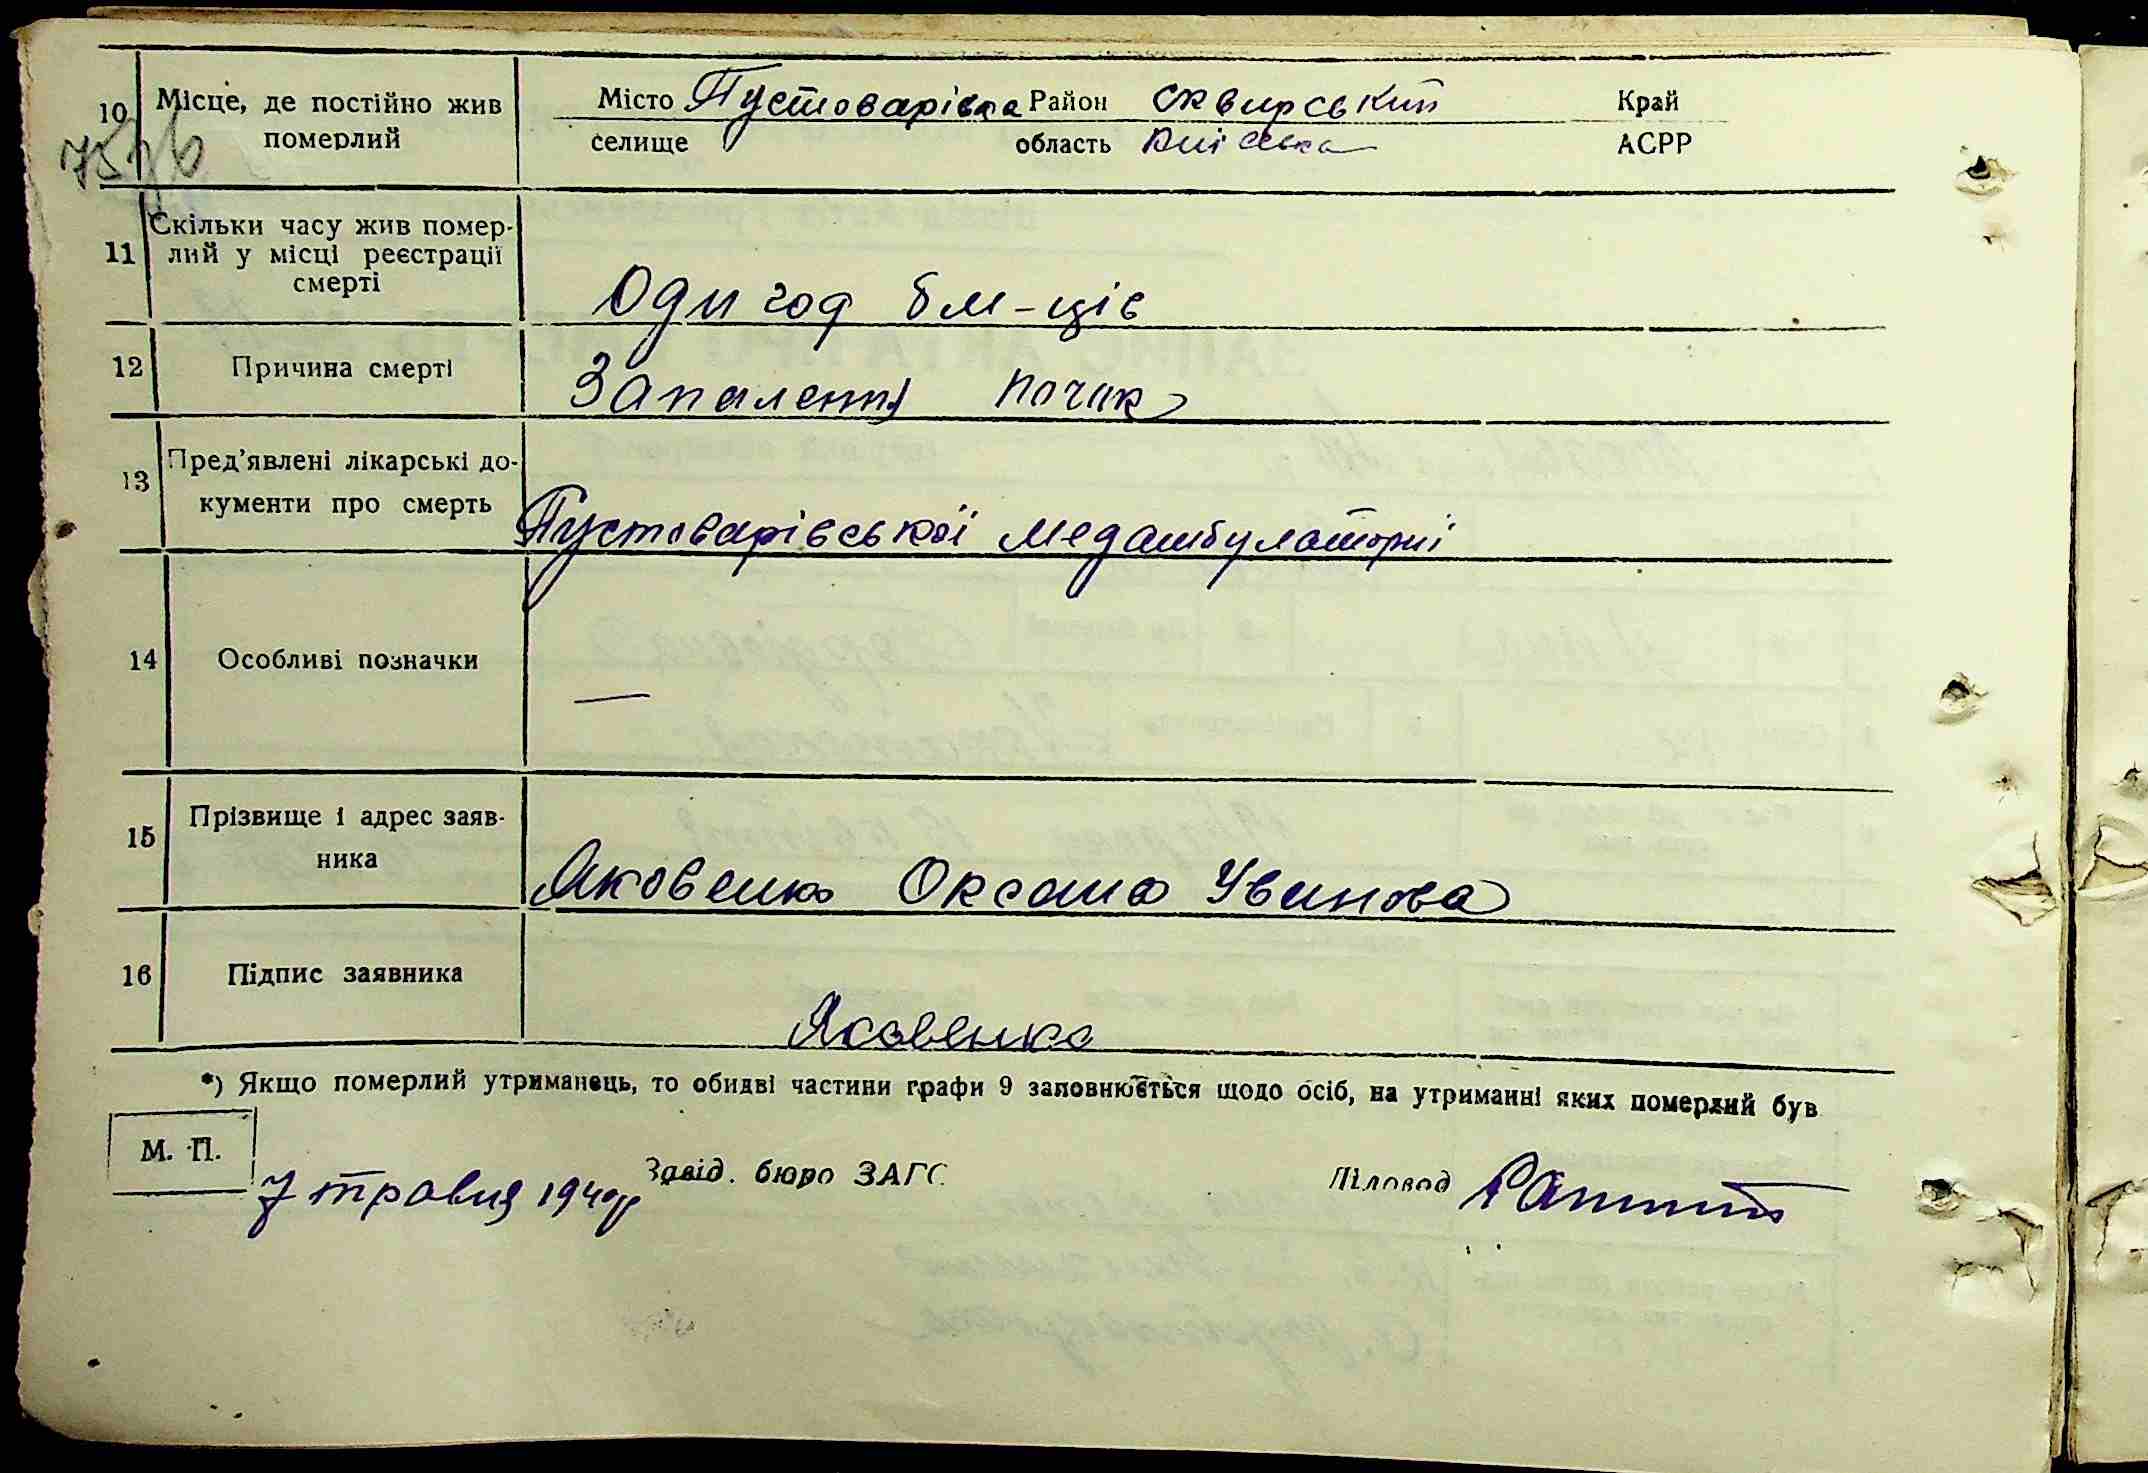 10 Місце, де постійно жив Місто Пустоварівка Район сквирський Край
померлий селище область Київська АСРР
Скільки часу жив помер-
11 лий у місці реєстрації
смерті
Оди год 6 м-ців
12 Причина смерті Запалення почик
Пред'явлені лікарські до-
13 кументи про смерть Пустоварівської медамбулаториї
14 Особливі позначки —
15 Прізвище і адрес заяв-
ника Яковенко Оксана Уванова
16 Підпис заявника
Яковенко
*) Якщо померлий утриманець, то обидві частини графи 9 заповнюється щодо осіб, на утриманні яких померлий був
М. П. Завід. бюро ЗАГС Діловод
7 травня 1940р